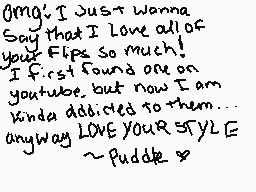 omg! I Just wanna
say that I Love all of
your Flips so much!
I first found one on
youtube, but now I am
kinda addicted to them...
anyway LOVE YOUR STYLE
~ Puddle